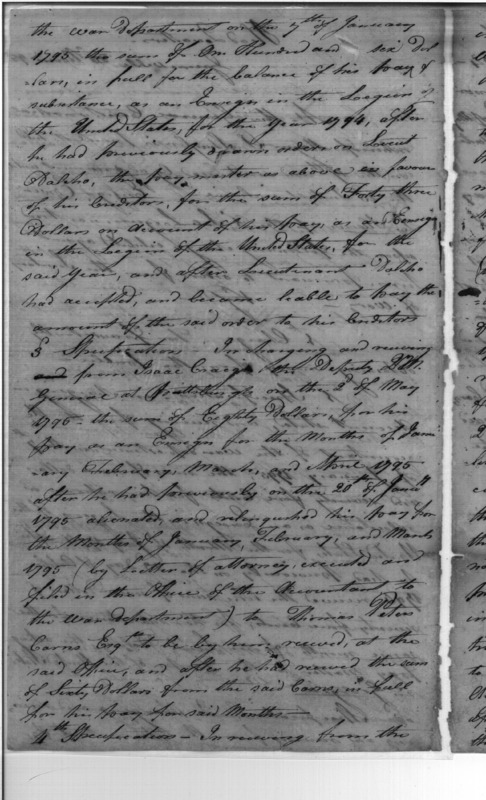 the war department on the 7th of January
1795 the sum of One Hundred and six Dol
lars, in full for the balance of his pay &
subsistance, as an Ensign in the Legion of
the United States, for the year 1794, after
he had previously drawn orders on Lieut
Dalcho, the pay master as above in favour
of his Creditors, for the sum of Forty three
Dollars on account of his pay, as an Ensign
in the Legion of the United States, for the
said Year, and after Lieutenant Dalcho
had accepted, and became liable to pay the
amount of the said order to his Creditors
3 Specification - In charging and receiving
from Isaac Craig, the Deputy
General at Pittsburgh on the 2d of May
1795 - the sum of Eighty Dollars, for his
pay as an Ensign for the Months of Janu
ary February, March, and April 1795
after he had previously on the 20th of Janu
1795 alienated, and relinquished his pay for
the Months of January, February, and March
1795 (by Letter of attorney, executed and
filed in the Office of the Accountant to
the war department) to Thomas Peter
Carns Esqr to be by him received, at the
said Office, and after he had received the sum
of Sixty Dollars from the said Carns, in full
for his pay for said Months -
4th Specification - In receiving from the